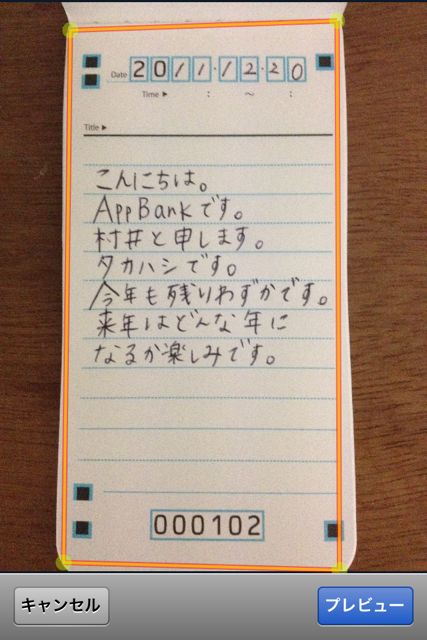 Date 2011.12.20
Time ▶ : ～ :
Title ▶
こんにちは。
AppBankです。
村井と申します。
タカハシです。
今年も残りわずかです。
来年はどんな年に
なるか楽しみです。
000102
キャンセル
プレビュー